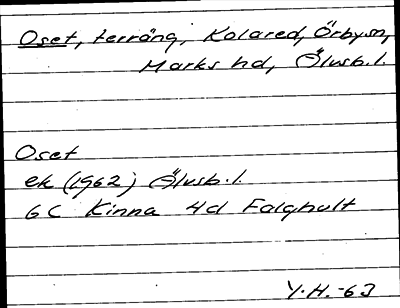 Oset, terräng, Kolared, Örby sn,
Marks hd, Älvsb. l.
Oset
ek (1962) Älvsb. l.
6C Kinna 4d Falghult
Y.H. -63